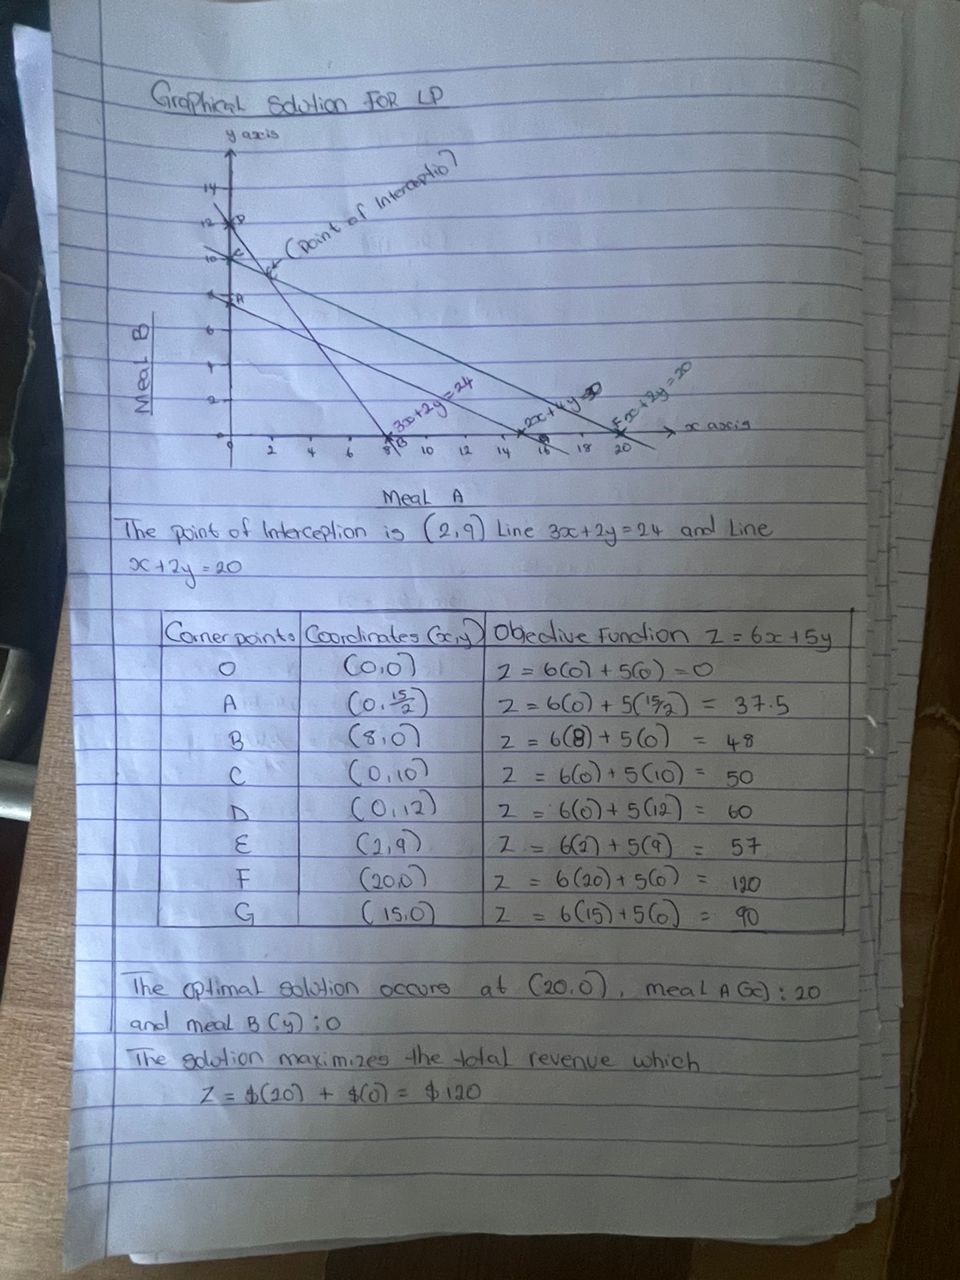 Graphical Solution FOR LP
y axis
14
12 D
(point of Interception)
10 C
E
A
6
2
Meal B
3x+2y=24
x+2y=20
F
x axis
0 2 4 6 8 B 10 12 14 16 18 20
Meal A
The point of Interception is (2,9) Line 3x+2y=24 and Line
x+2y=20
Corner points Coordinates (x,y) Objective Function Z = 6x+5y
O (0,0) Z = 6(0) + 5(0) = 0
A (0, 15/2) Z = 6(0) + 5(15/2) = 37.5
B (8,0) Z = 6(8) + 5(0) = 48
C (0,10) Z = 6(0) + 5(10) = 50
D (0,12) Z = 6(0) + 5(12) = 60
E (2,9) Z = 6(2) + 5(9) = 57
F (20,0) Z = 6(20) + 5(0) = 120
G (15,0) Z = 6(15) + 5(0) = 90
The optimal solution occurs at (20,0), meal A (x) : 20
and meal B (y) : 0
The solution maximizes the total revenue which
Z = $(20) + $(0) = $120